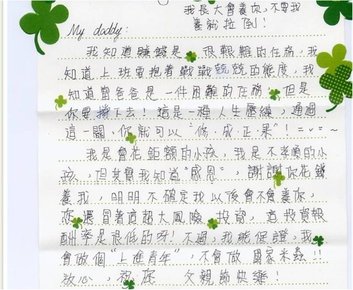 我長大會養你,不要我
養就拉倒!
My daddy:
我知道賺錢是一很艱難的任務,我
知道上班要抱著戰戰兢兢的態度,我
知道當爸爸是一件困難的任務,但是
你要撐下去!這是一種人生歷練,通過
這一關,你就可以"修成正果"!=v=~
我是會花鉅額的小孩,我是不孝順的小
孩,但其實我知道"感恩",謝謝你花錢
養我,明明不確定我以後會不會養你,
您還冒著這超大風險,投資,這投資報
酬率是很低的呀!不過,我能保證,我
會做個"上進青年",不會做國家米蟲!!
放心,祝您 父親節快樂!